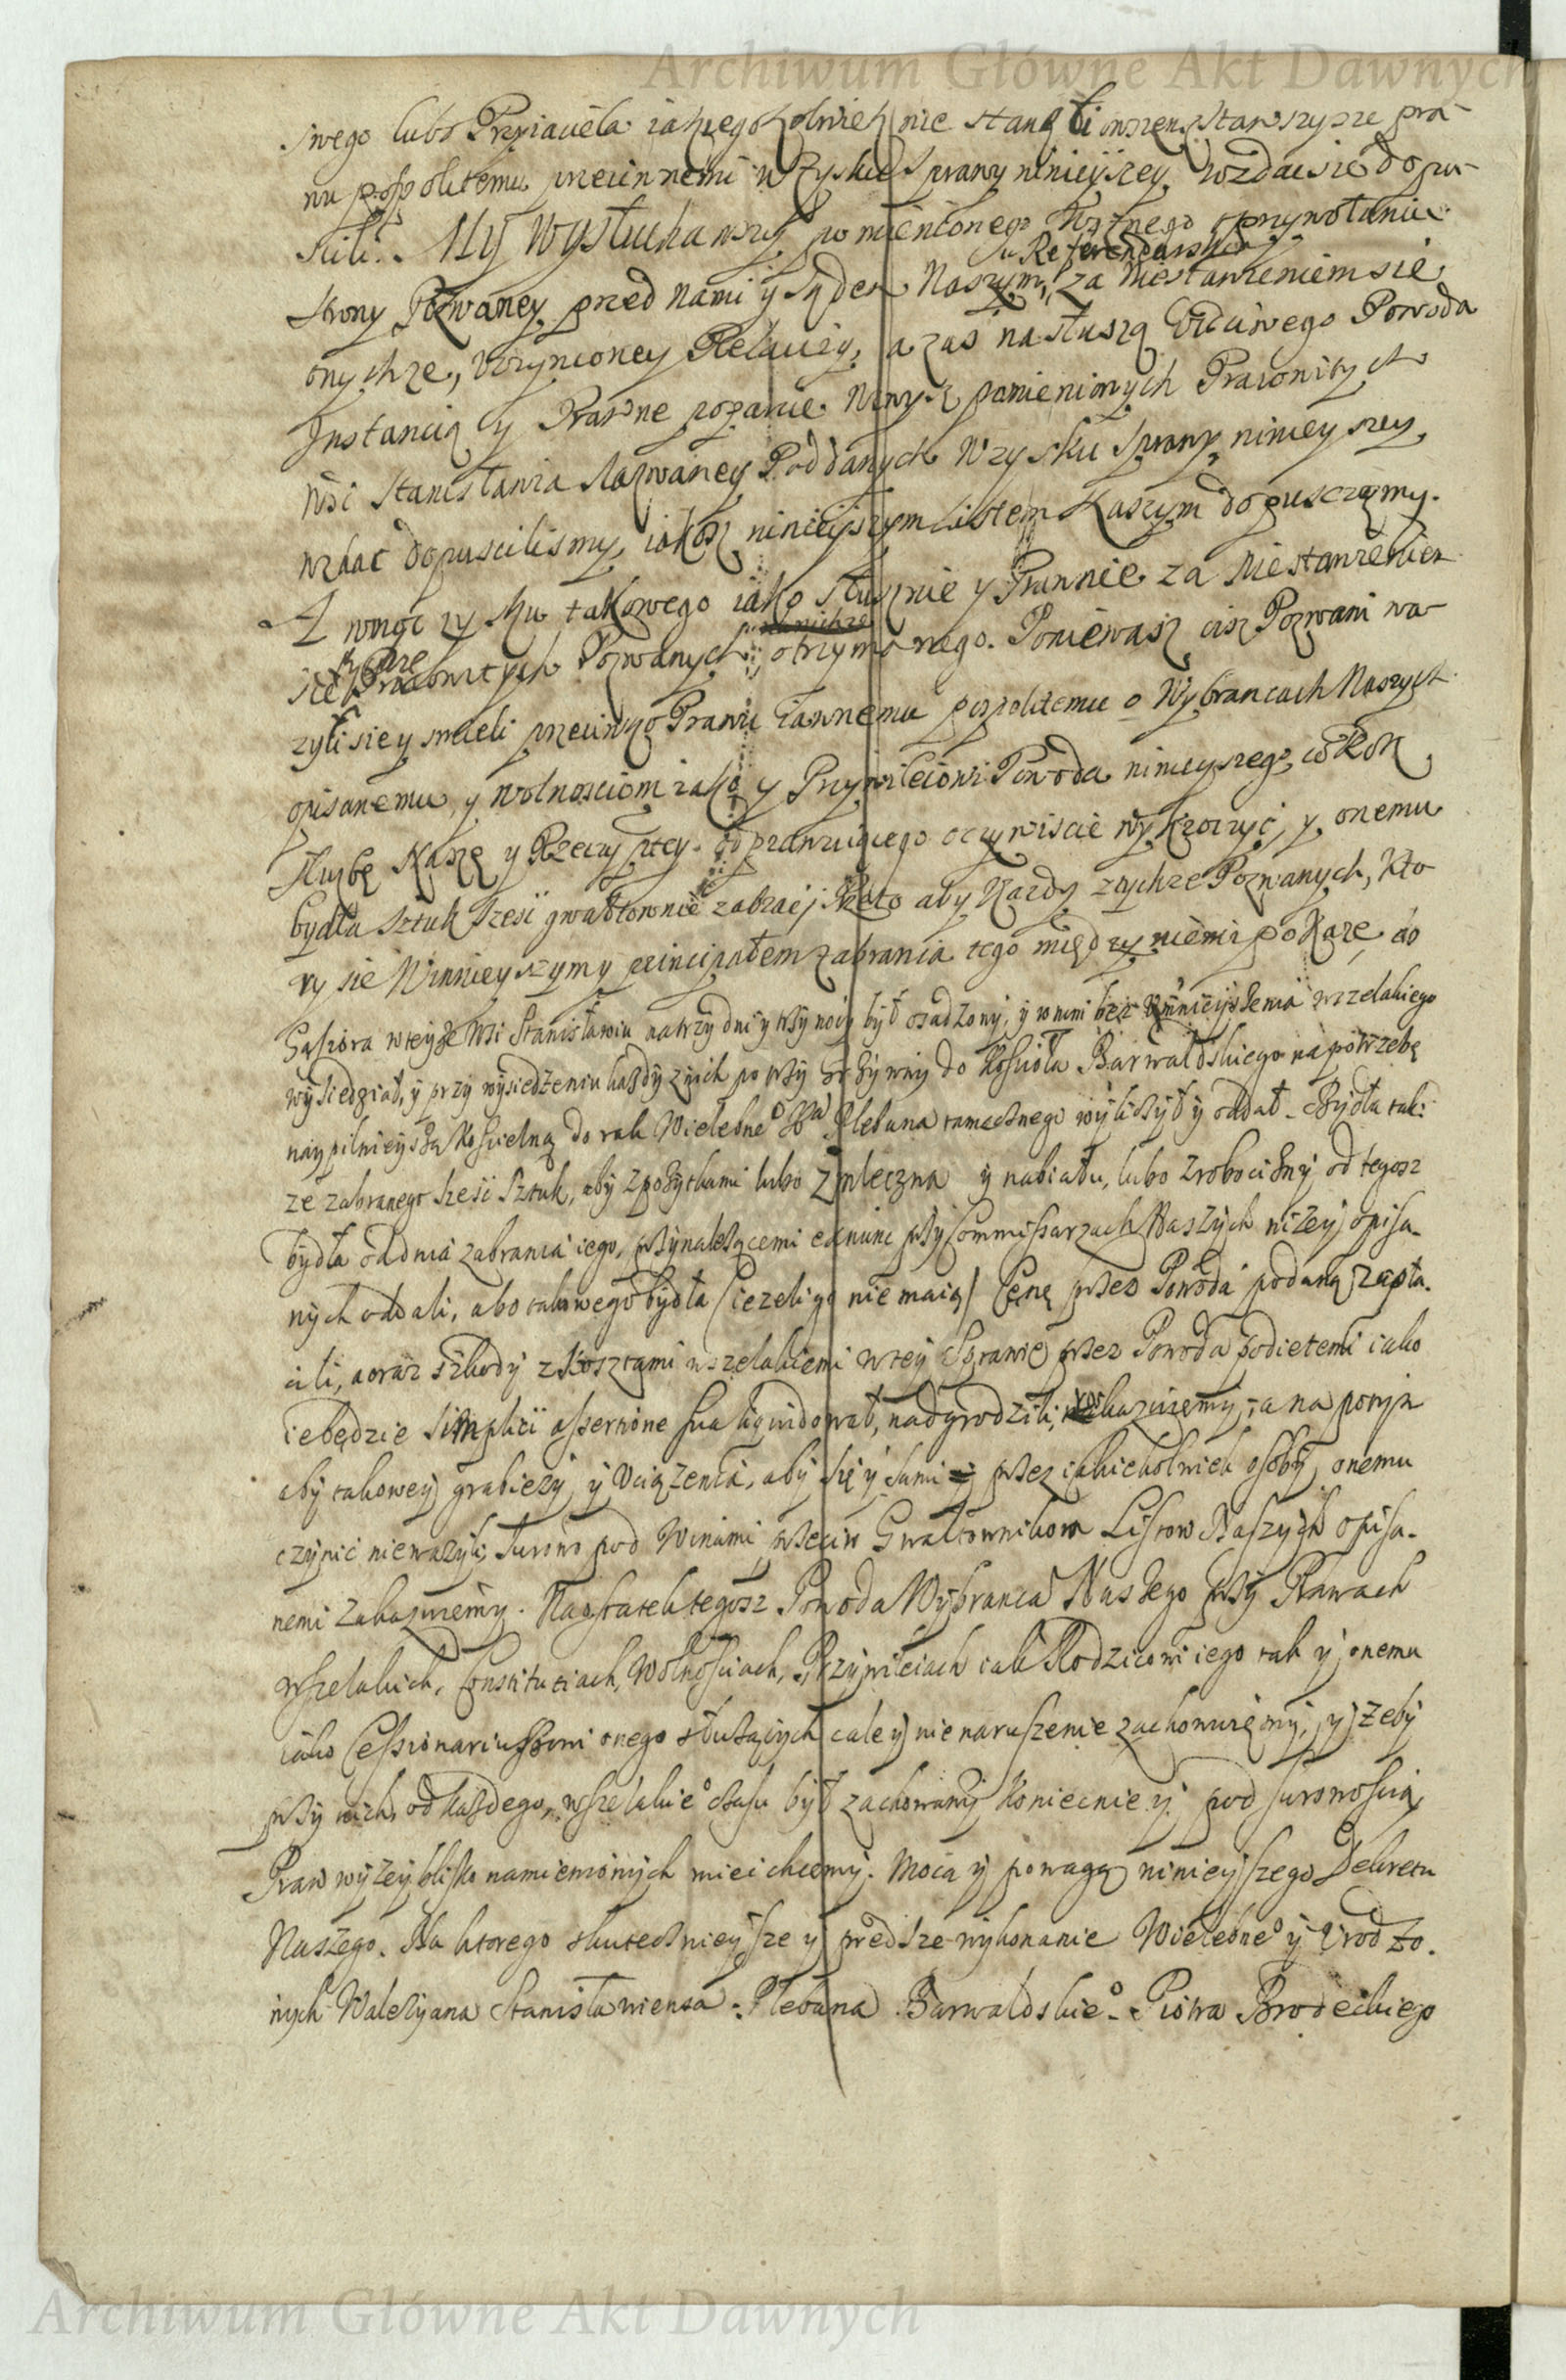 Archiwum Główne Akt Dawnych
swego lubo Przyiaciela iakiegokolwiek nie stanęli owszem starszysze pra-
wu pospolitemu przeciwnemi w zyskie sprawy ninieyszey wzdacsie dopu-
scili. My Wysłuchawszy pomienionego Woznego o przywołaniu
Strony Pozwaney przed nami y Sądem Naszym u Referendarskim za Niestanieniemsie
onychze, uczynioney Relaciey, a zas na słuszą Uczciwego Powoda
Instancią y Prawne poparcie wzwysz pomienionych Pracowitych
Wsi Stanisławia nazwaney Poddanych W zysku sprawy ninieyszey
wzdac dopuscilismy, iakosz ninieyszym Listem Naszym dopusczamy.
A w moc zysku takowego iako słusznie y Prawnie za Niestanieniem
sie tychze Pracowitych Pozwanych, otrzymanego. Poniewasz cisz Pozwani wa-
zyli sie y smieli przeciwko Prawu iawnemu pospolitemu o Wybrancach Naszych
opisanemu, y wolnosciom iako y Przywileiowi Powoda ninieyszego, co Rok
Słuzbę Naszę y Rzeczyptey odprawuiącego oczywiscie wykroczyć, y onemu
bydła sztuk szesc gwałtownie zabrac; Przeto aby Kazdy ztychze Pozwanych, Kto
ry sie Winnieyszymy principałem zabrania tego między niemi pokaze do
Gąsiora wteyze Wsi Stanisławiu natrzy dni y trzy nocy był osadzony, y w nim bez umnieyszenia wszelakiego
wysiedział, y przy wysiedzeniu kazdy znich po trzy grzywny do Koscioła Barwaldskiego na potrzebę
naypilnieyszą Koscielną do rąk Wielebne° Xa Plebana tamecznego wyliczył y oddał. Bydła tak:
ze zabranego szesc sztuk, aby zpozytkami lubo z mleczna y nabiału, lubo zrobocizny od tegosz
bydła oddnia zabrania iego, przynalezącemi exnunc przy Commissarzach Naszych nizey opisa-
nych oddali, abo takowego bydła (iezeli go nie maią) Cenę przez Powoda podaną zapła-
cili, aoraz szkody z Kosztami wszelakiemi wtey Sprawie przez Powoda podietemi iako
ie będzie simplici assertione sua liquidował, nadgrodzili, nakazuiemy; a na potym
aby takowey grabiezy y Uciązenia, aby się y sami y przez iakichkolwiek osoby, onemu
czynic niewazyli; surowo pod Winami przeciw Gwałtownikom Listow Naszych opisa-
nemi zakazuiemy. Naostatek tegosz Powoda Wybranca Naszego przy Prawach
wszelakich, Constitutiach, Wolnosciach, Przywileiach iak Rodzicowi iego tak y onemu
iako Cessionariuszowi onego słuzących cale y nienaruszenie zachowuięmy, y zeby
przy nich, od kazdego, wszelakie° czasu był zachowany koniecznie y pod surowością
Praw wyzey blisko namienionych mieć chcemy. Mocą y powagą ninieyszego Dekretu
Naszego. Na ktorego skutecznieysze y prędsze wykonanie Wielebne° y Urodzo-
nych Waleryana Stanisławiensa Plebana Barwaldskie°. Piotra Brodeckiego
Archiwum Główne Akt Dawnych